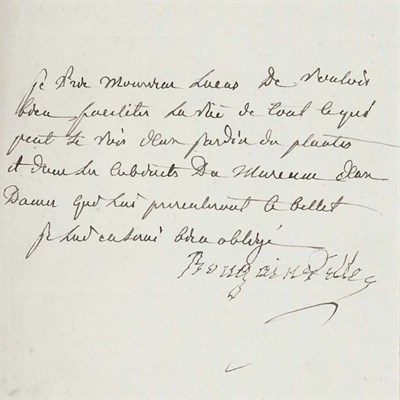 je prie monsieur Lucas de vouloir
bien faciliter la vue de tout ce qui
peut se voir dans jardin du plantes
et dans les cabinets du Museum aux
Dames qui lui presenteront le billet
je lui en serai bien obligé
Bougainville